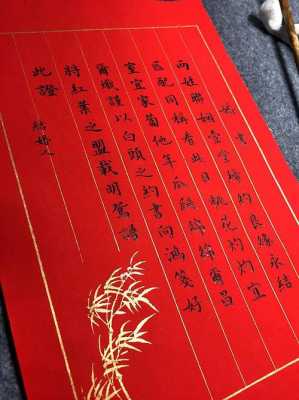 婚書
兩姓聯姻壹堂締約良緣永結
匹配同稱看此日桃花灼灼宜
室宜家蔔他年瓜瓞綿綿爾昌
爾熾謹以白頭之約書向鴻箋好
將紅葉之盟載明鴛譜
此證
結婚人